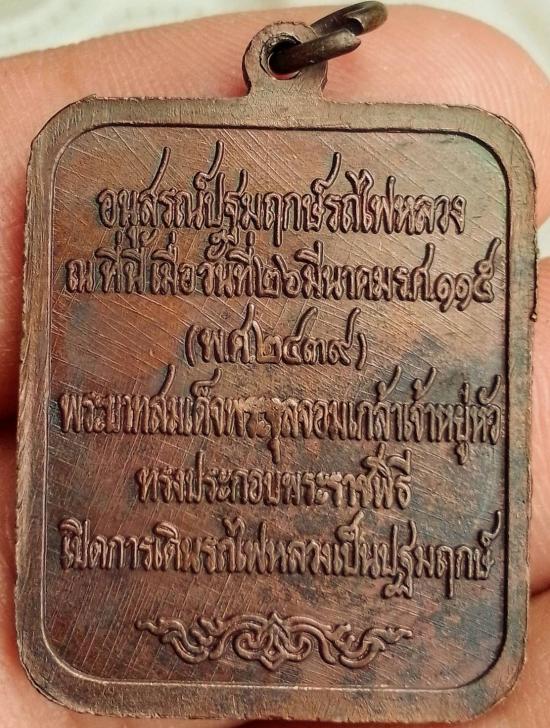 อนุสรณ์ปฐมฤกษ์รถไฟหลวง
ณ ที่นี้ เมื่อวันที่ ๒๖ มีนาคม ร.ศ. ๑๑๕
(พ.ศ. ๒๔๓๙)
พระบาทสมเด็จพระจุลจอมเกล้าเจ้าหยู่หัว
ทรงประกอบพระราชพิธี
เปิดการเดินรถไฟหลวงเป็นปฐมฤกษ์